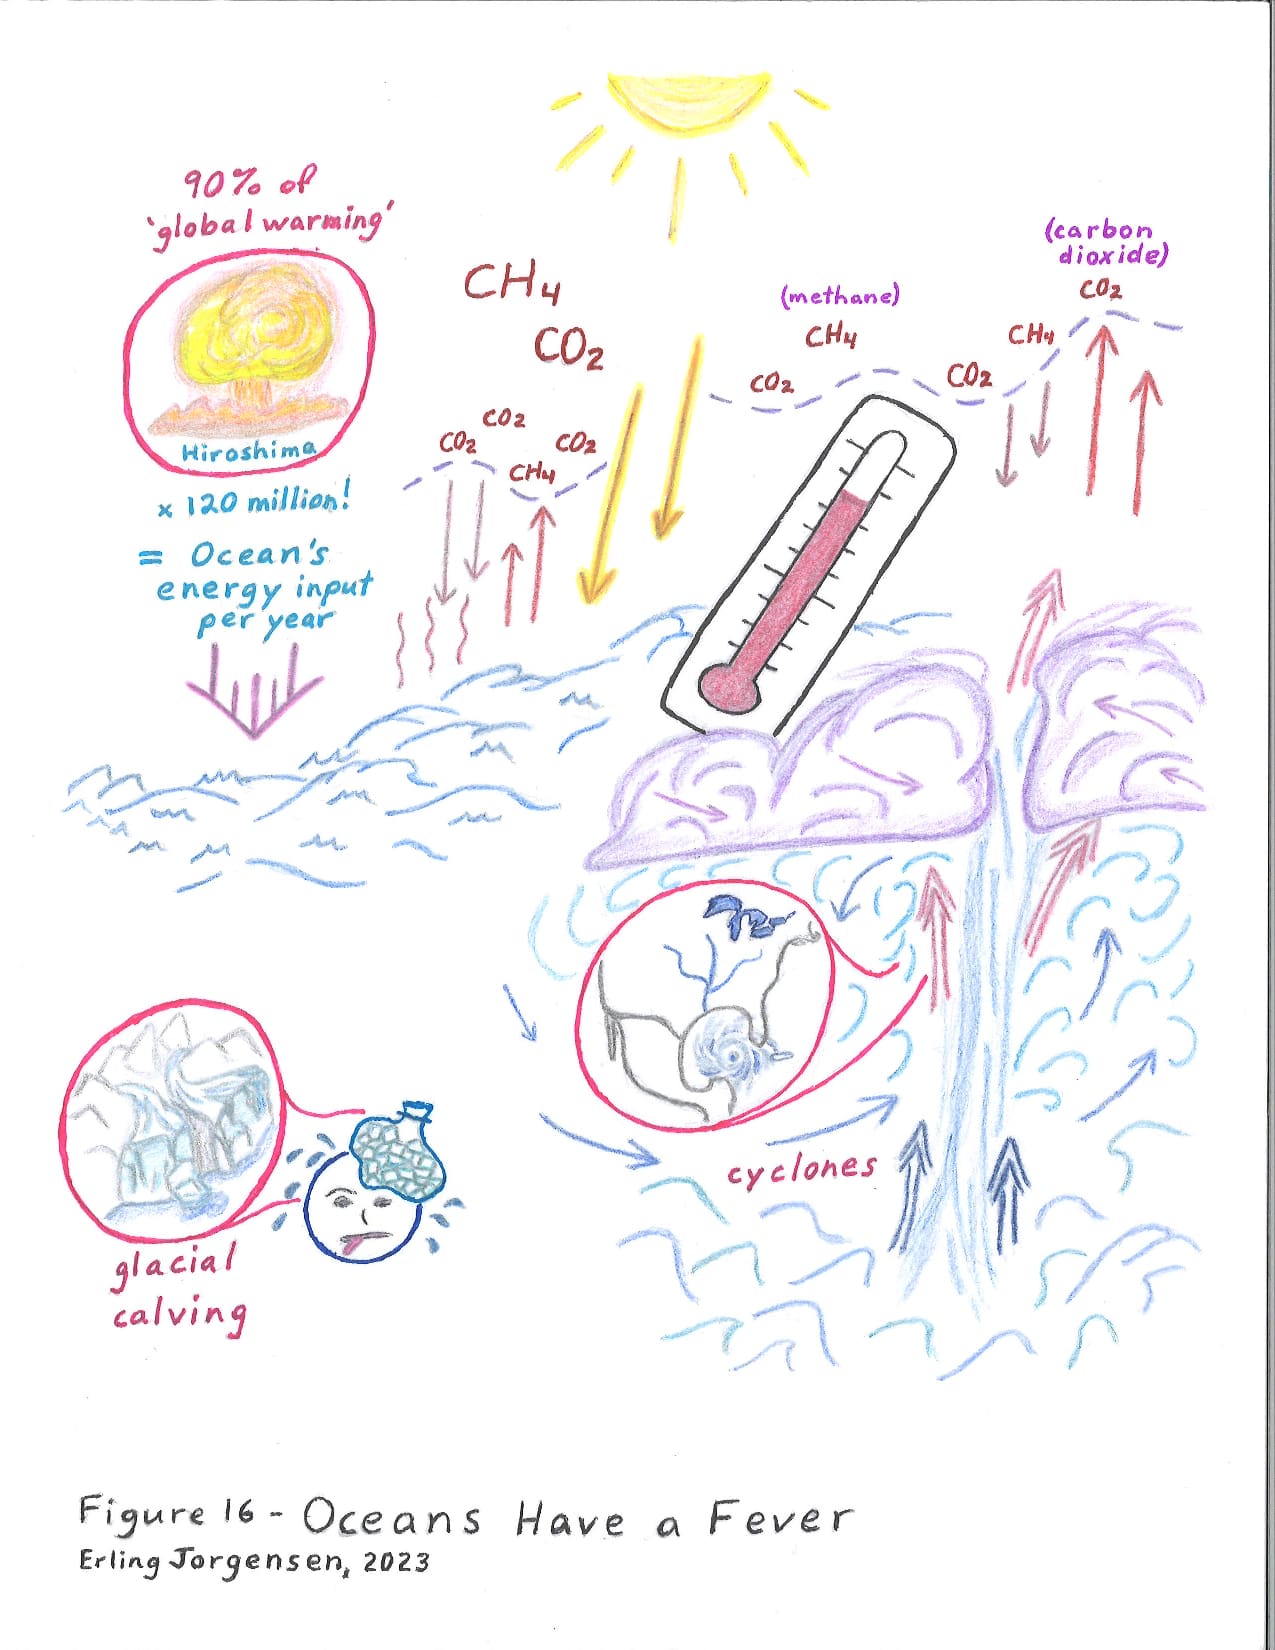 90% of
'global warming'
Hiroshima
x 120 million!
= Ocean's
energy input
per year
CH4
CO2
CO2
CO2
CO2
CH4
(methane)
CH4
CO2
CO2
CH4
(carbon
dioxide)
CO2
cyclones
glacial
calving
Figure 16 - Oceans Have a Fever
Erling Jorgensen, 2023